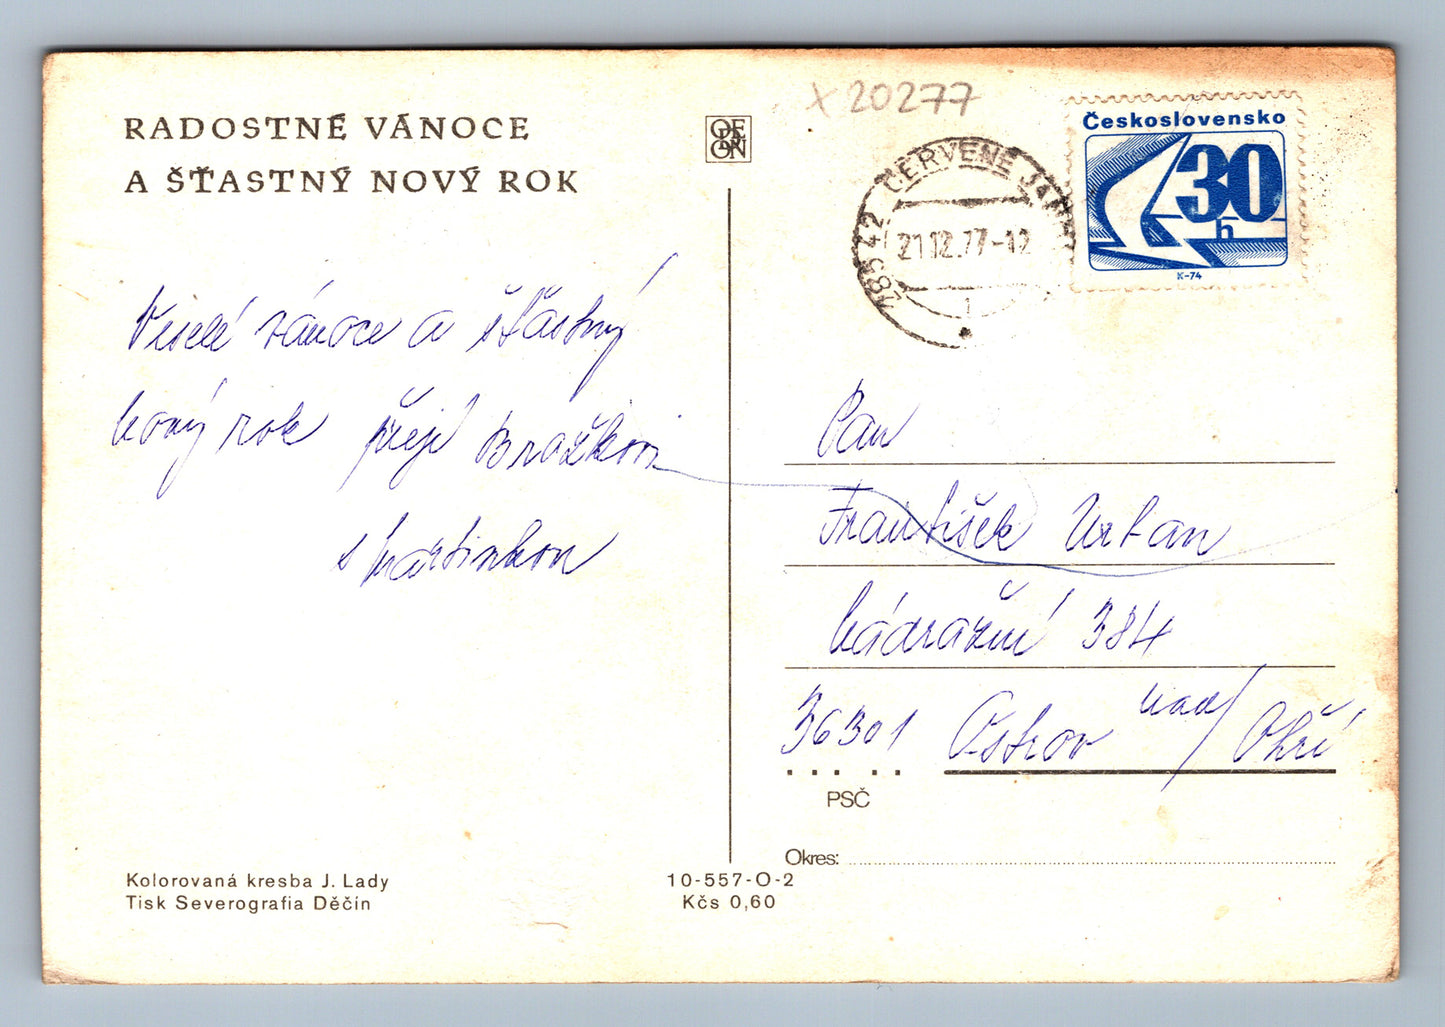 RADOSTNÉ VÁNOCE
A ŠŤASTNÝ NOVÝ ROK
ODEON
X 20277
Československo
30
h
K-74
785 42 ČERVENÉ JAN
21.12.77-12
1
Veselé vánoce a šťastný
nový rok přejí Brožkovi
s Martinkou
Pan
František Urban
Nádražní 384
36301 Ostrov nad/Ohří
PSČ
Okres:
Kolorovaná kresba J. Lady
Tisk Severografia Děčín
10-557-O-2
Kčs 0,60